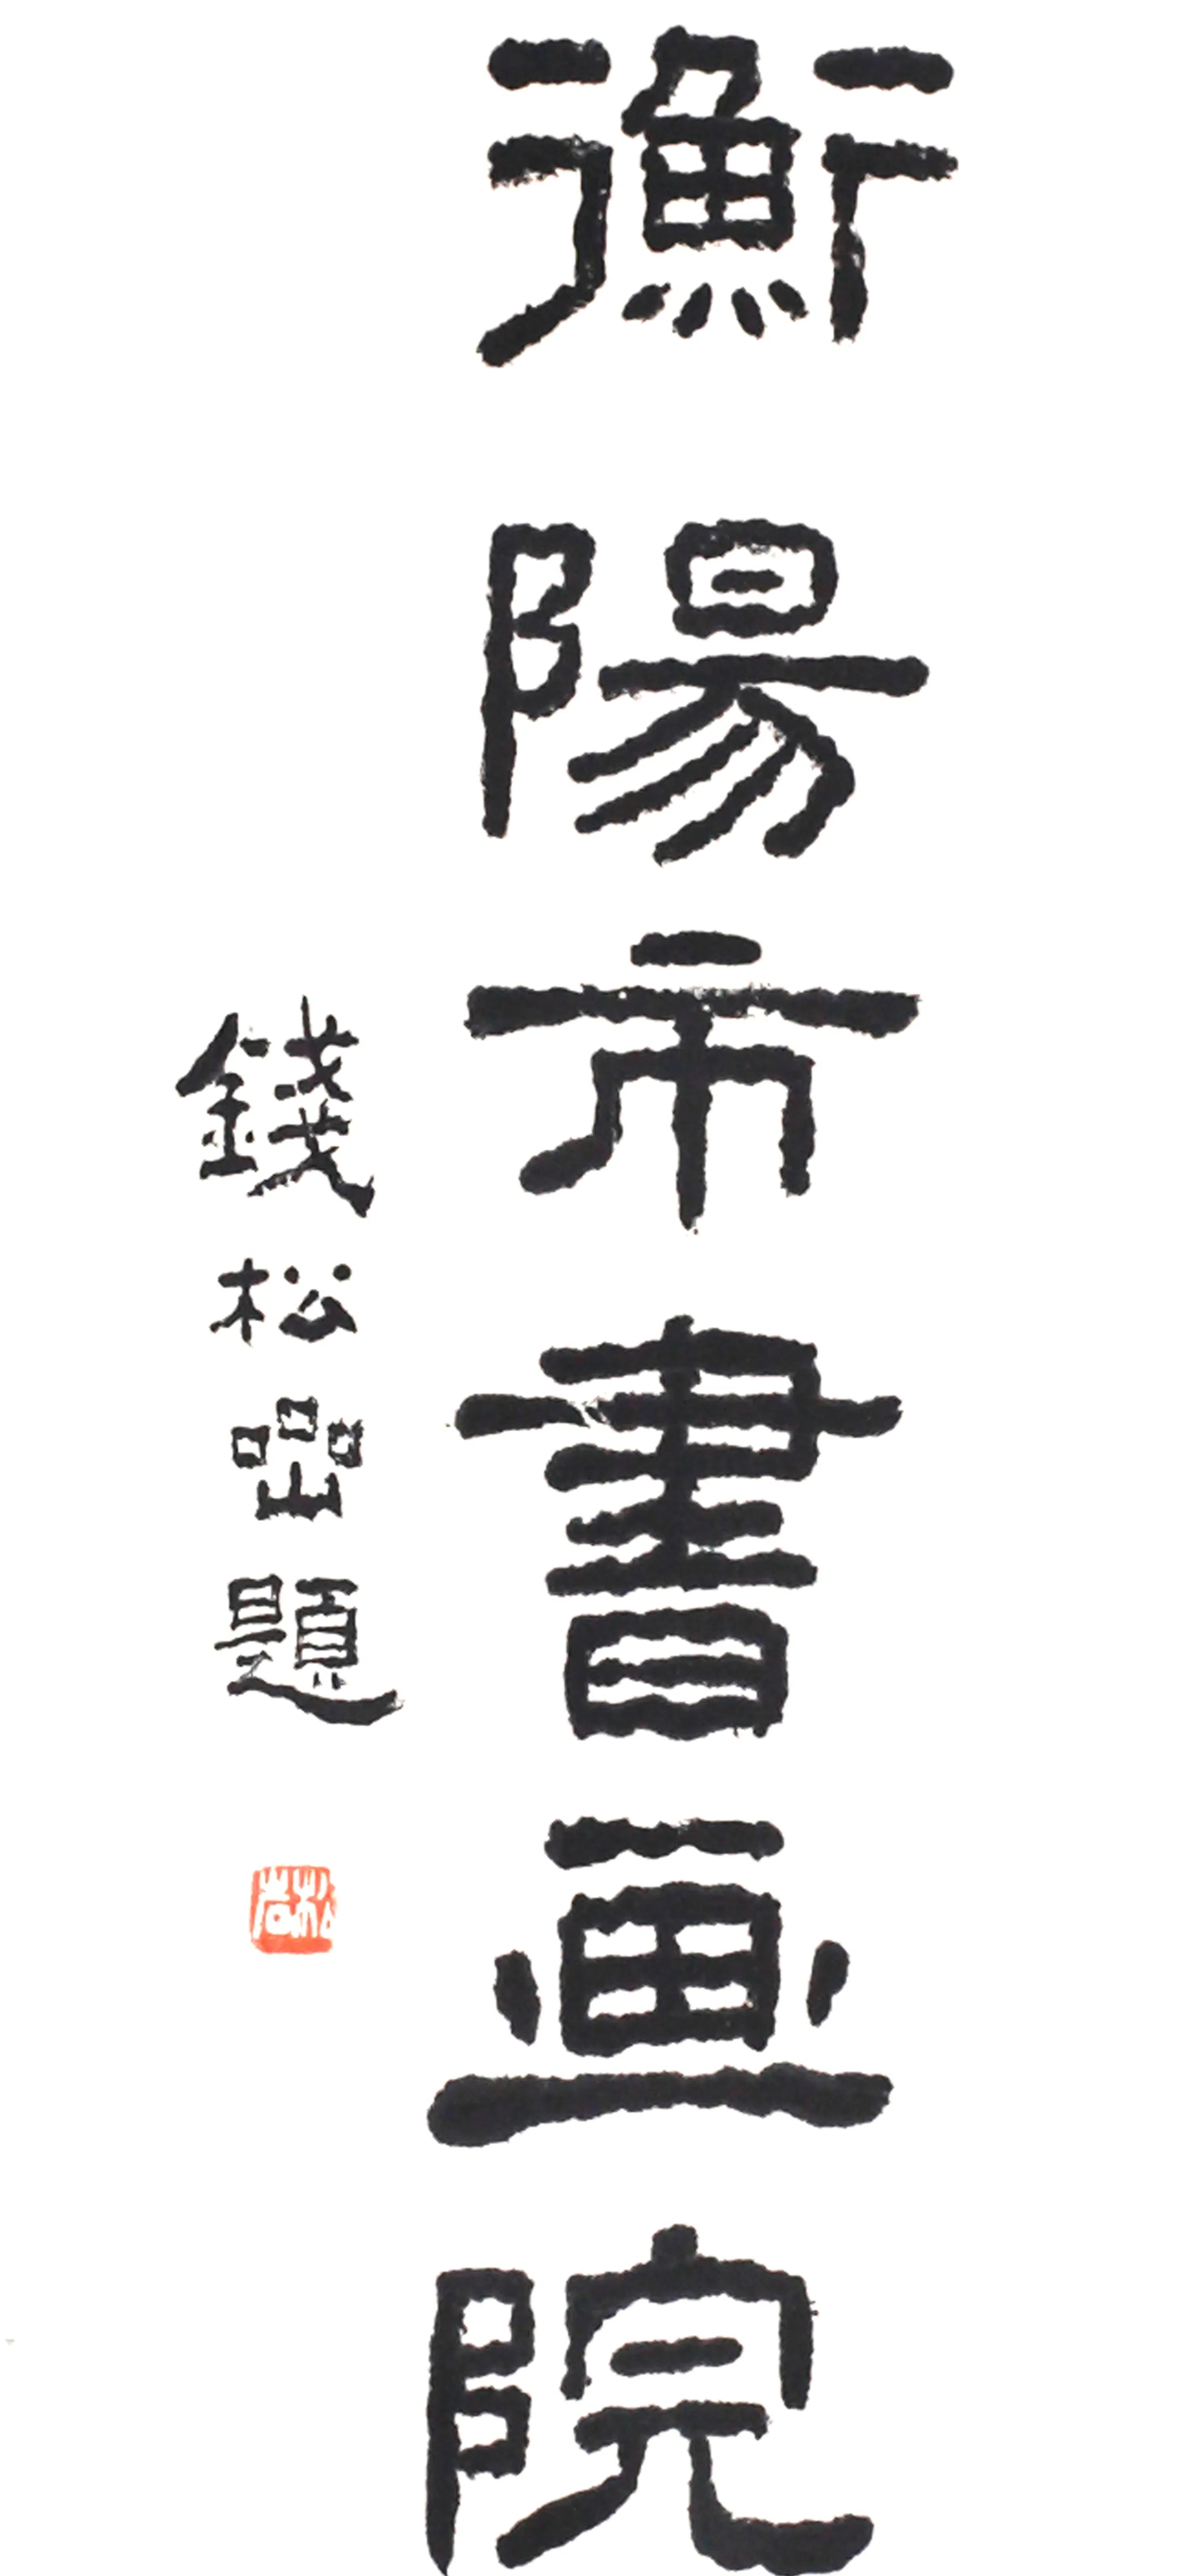 衡陽市書画院
錢松喦題
松岩